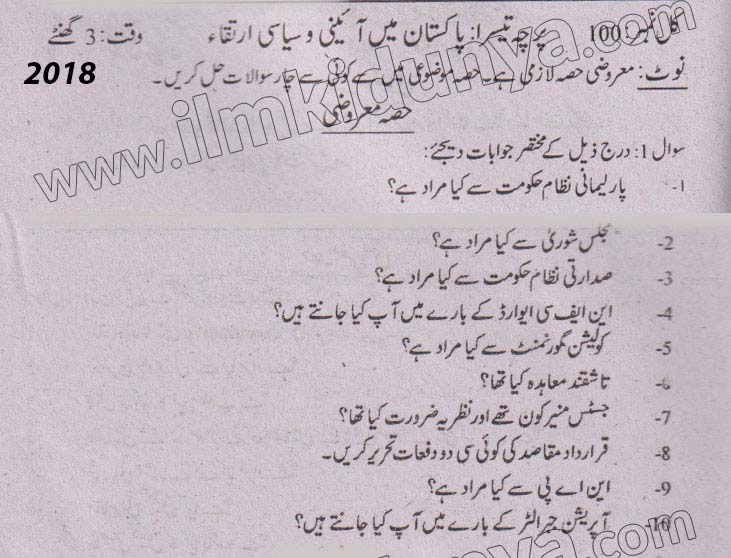 کل نمبر: 100 پرچہ تیسرا: پاکستان میں آئینی و سیاسی ارتقاء وقت: 3 گھنٹے
2018
نوٹ: معروضی حصہ لازمی ہے۔ حصہ موضوعی میں سے کوئی سے چار سوالات حل کریں۔
حصہ معروضی
سوال 1: درج ذیل کے مختصر جوابات دیجئے:
1- پارلیمانی نظام حکومت سے کیا مراد ہے؟
2- مجلس شوریٰ سے کیا مراد ہے؟
3- صدارتی نظام حکومت سے کیا مراد ہے؟
4- این ایف سی ایوارڈ کے بارے میں آپ کیا جانتے ہیں؟
5- کولیشن گورنمنٹ سے کیا مراد ہے؟
6- تاشقند معاہدہ کیا تھا؟
7- جسٹس منیر کون تھے اور نظریہ ضرورت کیا تھا؟
8- قرارداد مقاصد کی کوئی سی دو دفعات تحریر کریں۔
9- این اے پی سے کیا مراد ہے؟
10- آپریشن جبرالٹر کے بارے میں آپ کیا جانتے ہیں؟
www.ilmkidunya.com
dunya.com